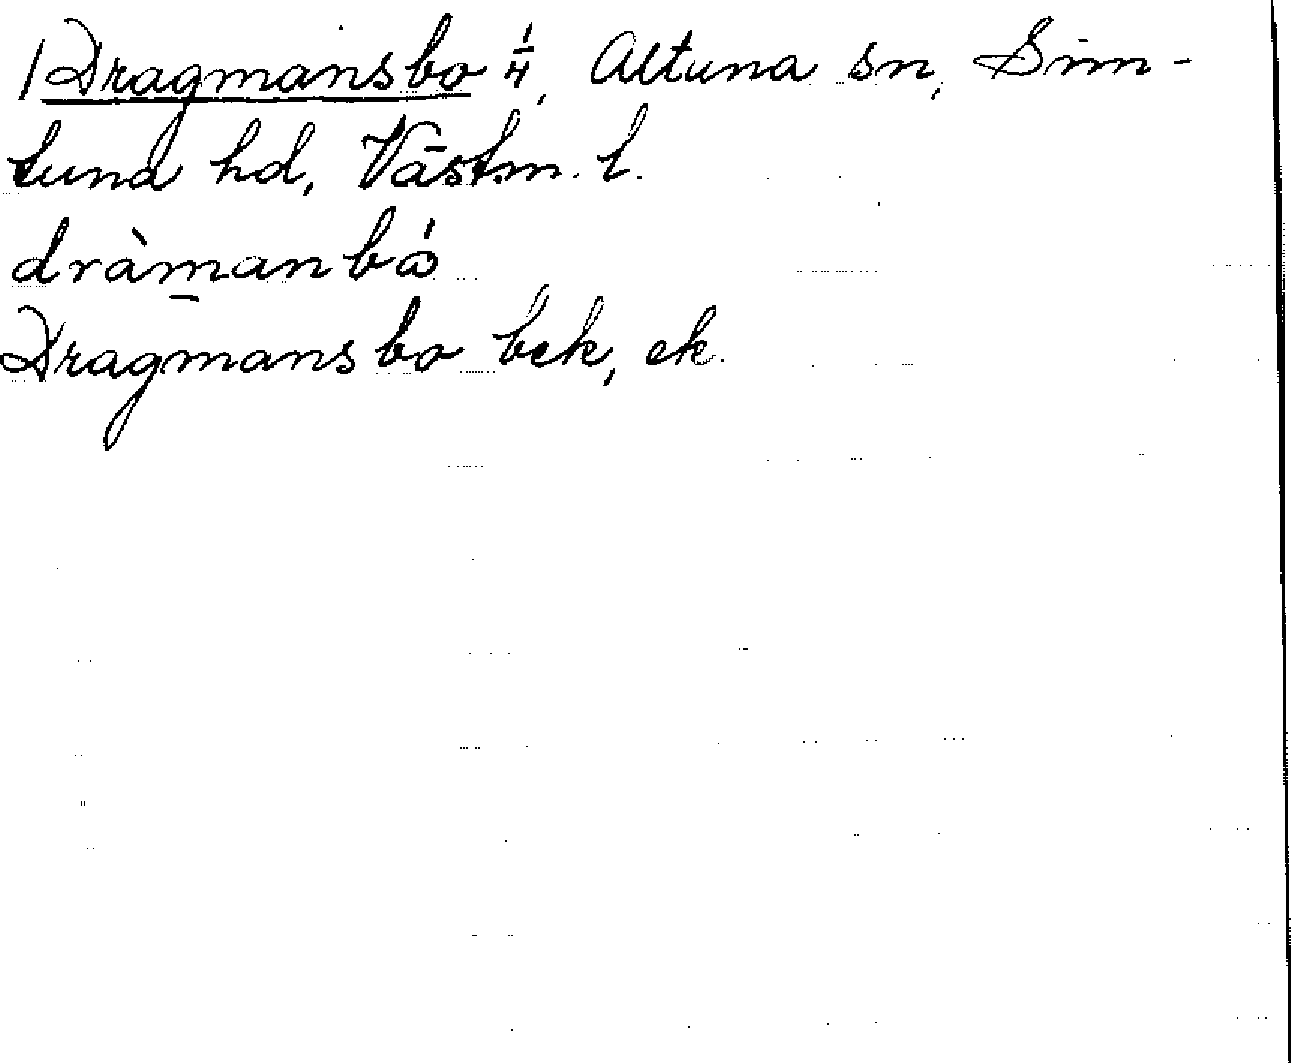 /Dragmansbo 1/4, Altuna sn, Sim-
tuna hd, Västm. l.
dràm̲anbó
Dragmansbo bek, ek.